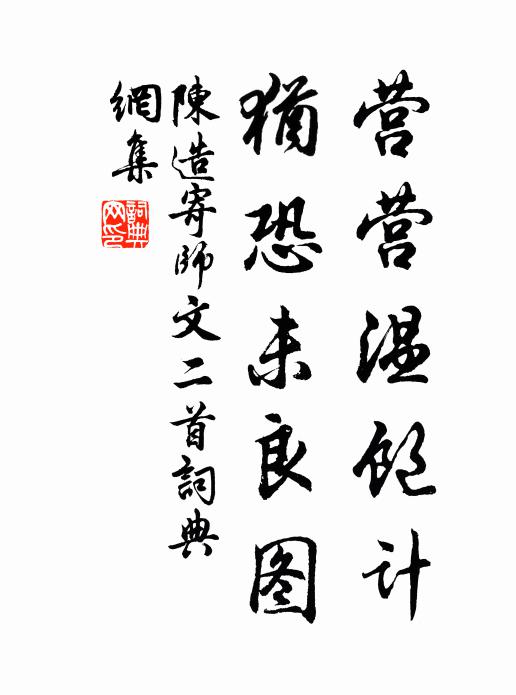 营营温饱计
猶恐未良图
陳造寄師文二首詞典
網集
詞典
网印